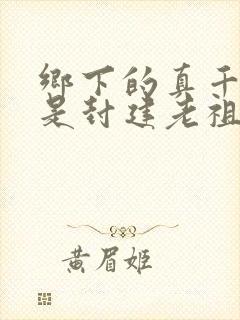 鄉下的真千
是封建老祖
黄眉姬